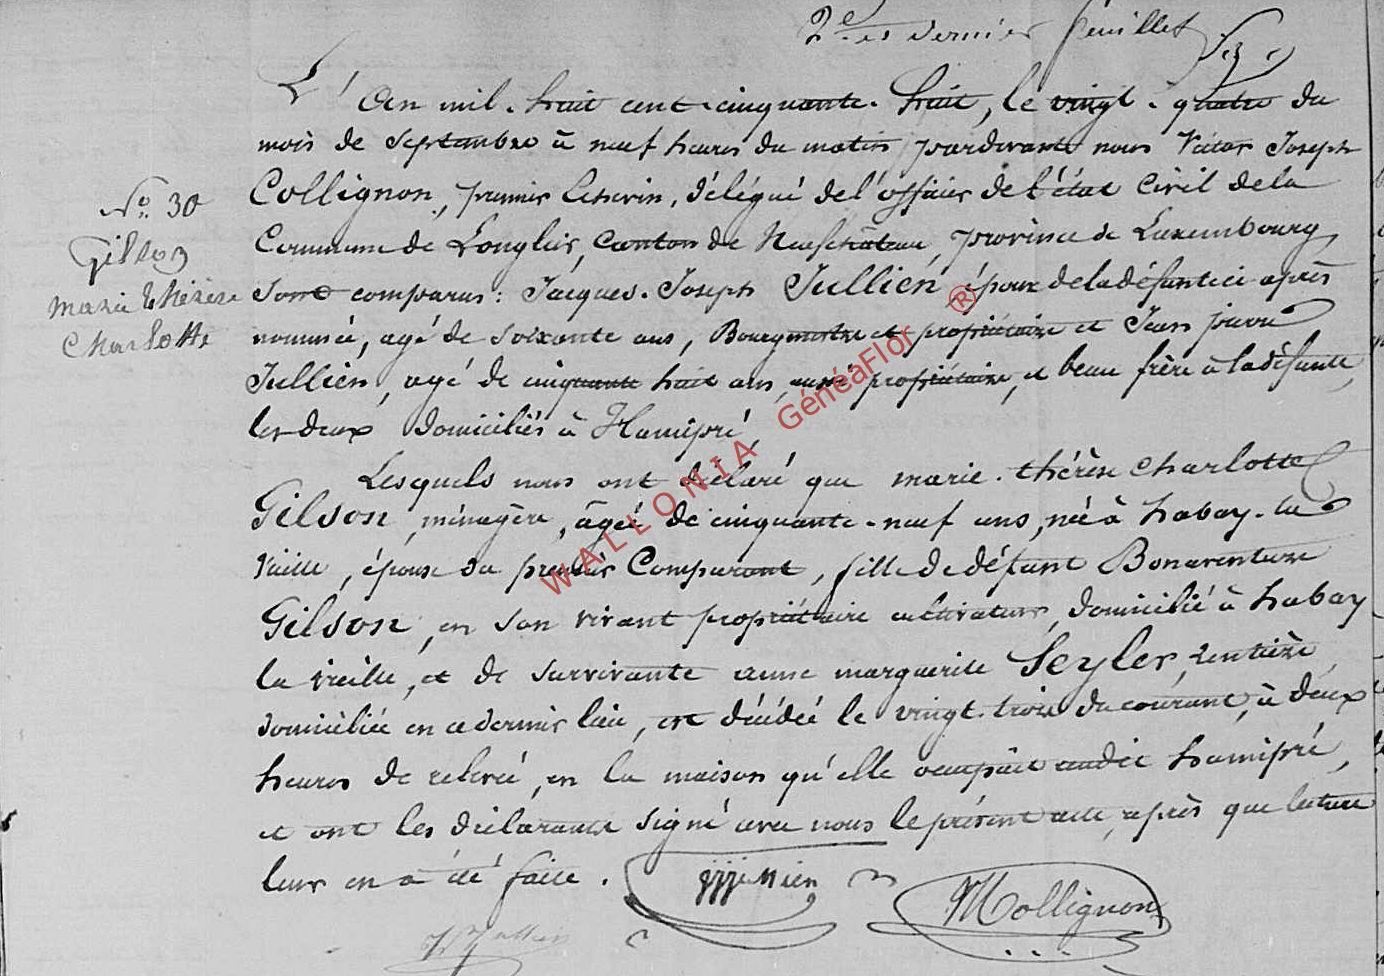 2e et dernier feuillet
L'an mil-huit cent-cinquante-huit, le vingt-quatre du
mois de Septembre à neuf heures du matin pardevant nous Victor Joseph
Collignon, premier Echevin, délégué de l'officier de l'état Civil de la
Commune de Longlier, canton de Neufchâteau, province de Luxembourg,
Sont comparus: Jacques-Joseph Jullien, époux de la défunte ci après
nommée, agé de soixante ans, Bourgmestre et propriétaire et Jean
Jullien, agé de cinquante huit ans, aussi propriétaire, et beau frère à la défunte,
les deux domiciliés à Hamipré,
Lesquels nous ont déclaré que marie-thérèse Charlotte
Gilson, ménagère, âgée de cinquante-neuf ans, née à habay-la
Vieille, épouse du premier Comparant, fille de défunt Bonaventure
Gilson, en son vivant propriétaire cultivateur, domicilié à habay
la vieille, et de survivante anne marguerite Seyler, rentière,
domiciliée en ce dernier lieu, est décédée le vingt-trois du courant, à deux
heures de relevée, en la maison qu'elle occupait audit hamipré,
et ont les déclarants signé avec nous le présent acte, après que lecture
leur en a été faite.
No. 30
Gilson
marie thérèse
Charlotte
WALLONIA GénéaFlor ®
Collignon